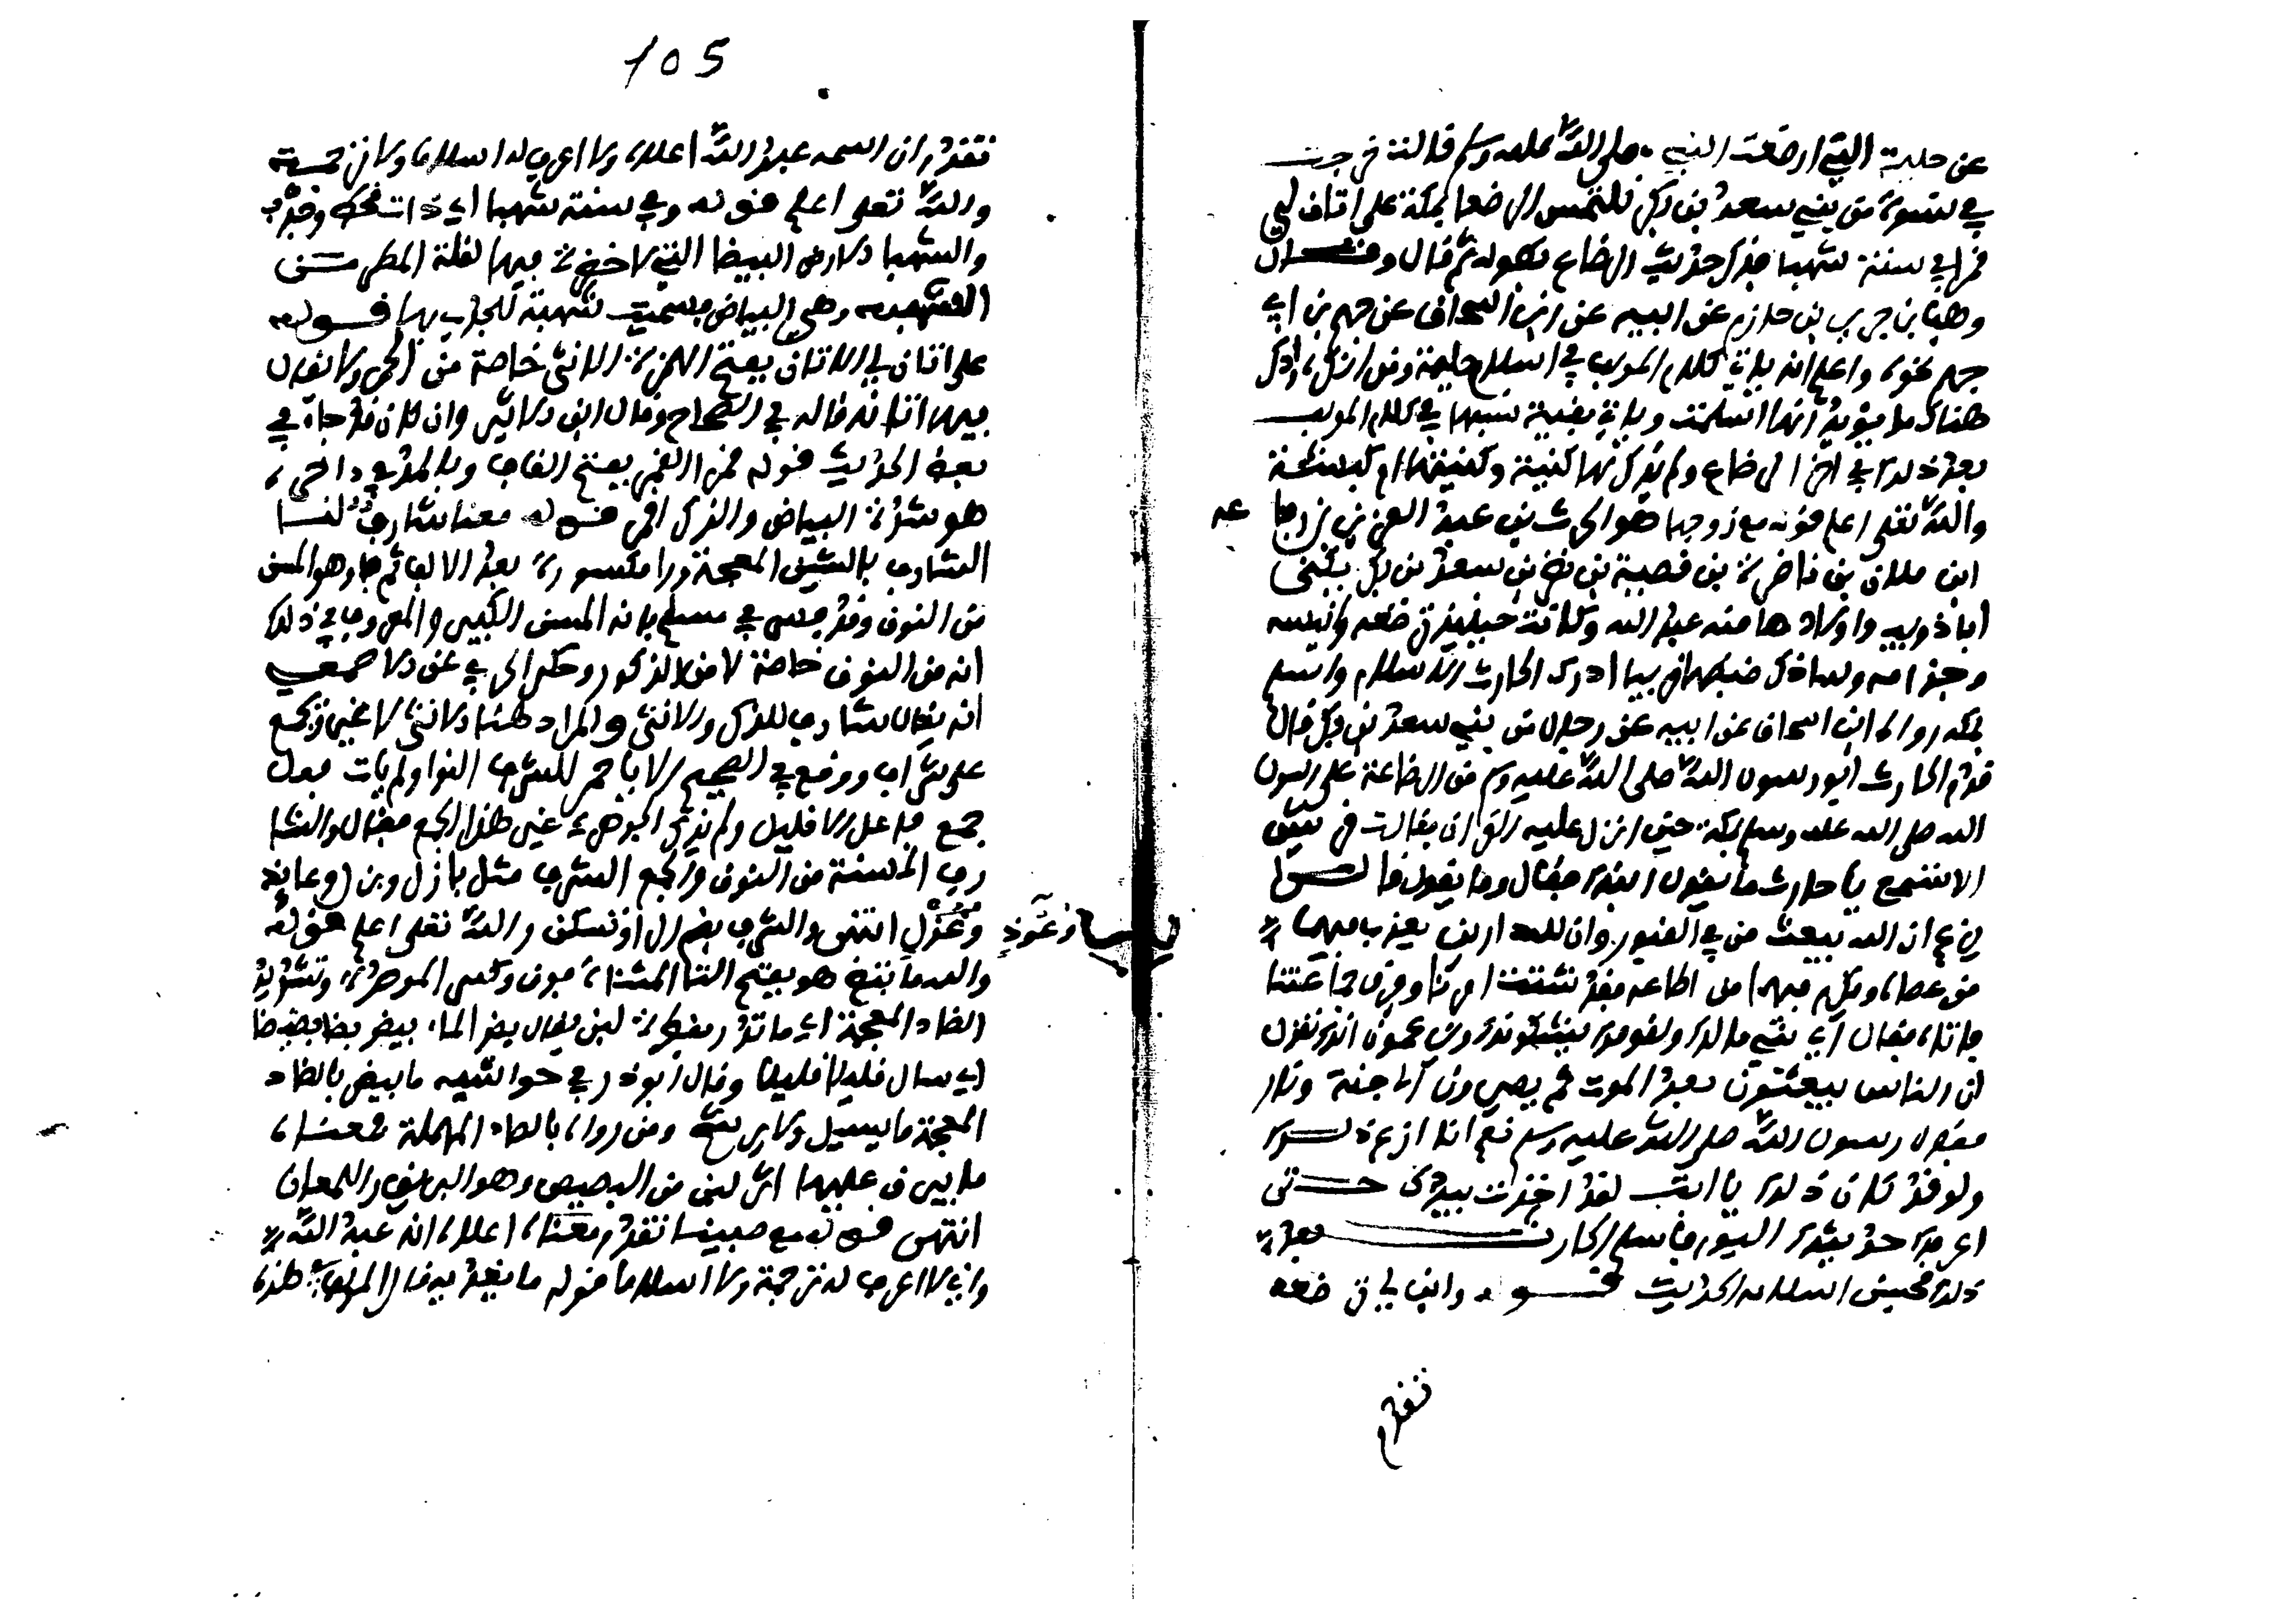 عن حليمة التي ارضعت النبي صلى الله عليه وسلم قالت خرجت
في نسوة من بني سعد بن بكر نلتمس الرضعا بمكة على اتان لي
قمرا في سنة شهبا فذكر حديث الرضاع بطوله ثم قال وقال
وهب بن جرير بن حازم عن ابيه عن ابن اسحاق عن جهم بن ابي
جهم نحوه واعلم انه ياتي كلام المولف في اسلام حليمة ومن انكره واذكر
هناك ما يؤيد انها اسلمت وياتي بقية نسبها في كلام المولف
بعد ذلك في اخر الرضاع ولم يذكر لها كنية وكنيتها ام كبشة
والله تعلى اعلم قوله مع زوجها هو الحرث بن عبد العزى بن رفاعة
ابن ملان بن ناضرة بن قصية بن نصر بن سعد بن بكر يكنى
ابا ذويب واولادها منه عبد الله وكانت حينئذ ترضعه وانيسه
وجذامه وساذكر ضبطها قريبا ادرك الحارث الاسلام واسلم
بمكه رواه ابن اسحاق عن ابيه عن رجال من بني سعد بن بكر قال
قدم الحارث ابو رسول الله صلى الله عليه وسلم من الرضاعة على رسول
الله صلى الله عليه وسلم بمكة حين انزل عليه القران فقالت قريش
الا تسمع يا حارث ما يقول ابنك فقال وما يقول قالوا
يزعم ان الله يبعث من في القبور وان لله دارين يعذب فيهما
من عصاه ويكرم فيهما من اطاعه فقد شتت امرنا وفرق جماعتنا
فاتاه فقال اي بني مالك ولقومك يشكونك ويزعمون انك تقول
ان الناس يبعثون بعد الموت ثم يصيرون الى جنة ونار
فقال رسول الله صلى الله عليه وسلم نعم انا ازعم ذلك
ولو قد كان ذلك يا ابت لقد اخذت بيدك حتى
اعرفك حديثك اليوم فاسلم الحارث بعد
ذلك فحسن اسلامه الحديث قوله وابن لي ترضعه
تقدم
105
تقدم ان اسمه عبد الله اعلاه ولا اعرف له اسلاما ولا ترجمة
والله تعلى اعلم قوله وفي سنة شهبا اي ذات قحط وجدب
والشهبا الارض البيضا التي لا خضرة فيها لقلة المطر من
الشهبه وهي البياض فسميت سنة الجدب بها قوله
على اتان لي الاتان بفتح الهمزة الانثى خاصة من الحمر ولا يقال
فيها اتانة قاله في الصحاح وقال ابن الاثير وان كان قد جاء في
بعض الحديث قوله قمرا القمر بفتح القاف وبالمد في اخره
هو شدة البياض والذكر اقمر قوله معنا شارف لنا
الشارف بالشين المعجمة ورا مكسورة بعد الالف ثم فا وهو المسن
من النوق وقد فسر في مسلم بانه المسن الكبير والمعروف في ذلك
انه من النوق خاصة لا من الذكور وحكى الحربي عن الاصمعي
انه يقال شارف للذكر والانثى والمراد هنا الانثى لا غير وتجمع
على شراف ووقع في الصحيح الا يا حمز للشرف النوا ولم يات فعل
جمع فاعل الا قليل ولم يذكر الجوهري غير هذا الجمع فقال والشا
رف المسنة من النوق والجمع الشرف مثل بازل وبزل وعايذ
وعوذ
وعوذ انتهى والشرف بضم الرا وتسكن والله تعلى اعلم قوله
والله ما تبض هو بفتح التا المثناة فوق وكسر الموحدة وتشديد
الضاد المعجمة اي ما تدر بقطرة لبن يقال بض الماء يبض بضا بضيضا
اي سال قليلا قليلا وقال ابو ذر في حواشيه ما يبض بالضاد
المعجمة ما يسيل ولا يرشح ومن رواه بالصاد المهملة فمعناه
ما يبرق عليها اثر لبن من البصيص وهو البريق واللمعان
انتهى قوله مع صبينا تقدم معناه اعلاه انه عبد الله
واني لا اعرف له ترجمة ولا اسلاما قوله ما يغذيه قال المولف هذه